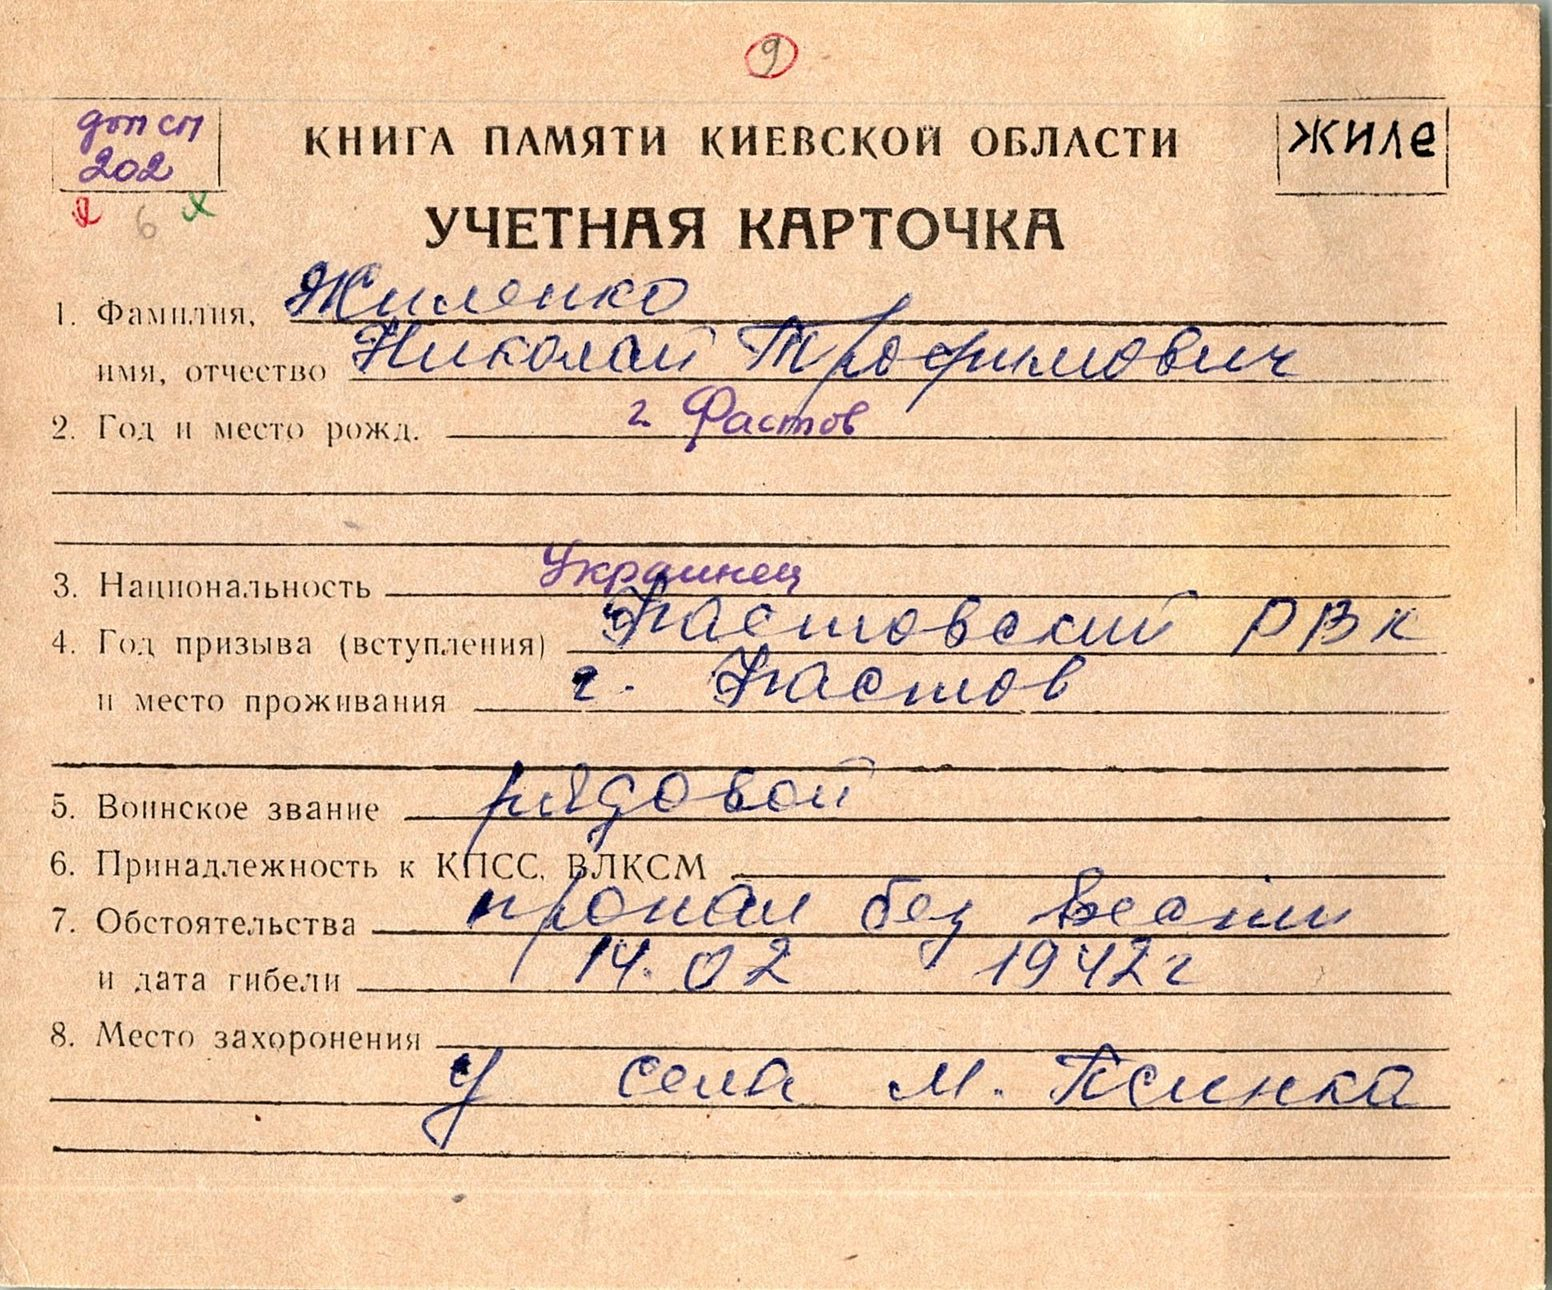 9
доп сп
202
КНИГА ПАМЯТИ КИЕВСКОЙ ОБЛАСТИ
ЖИЛЕ
6
УЧЕТНАЯ КАРТОЧКА
1. Фамилия, Жиленко
имя, отчество Николай Трофимович
2. Год и место рожд. г. Фастов
3. Национальность Украинец
4. Год призыва (вступления) Фастовский РВК
и место проживания г. Фастов
5. Воинское звание рядовой
6. Принадлежность к КПСС, ВЛКСМ
7. Обстоятельства пропал без вести
и дата гибели 14.02 1942г
8. Место захоронения
у села М. Псинка